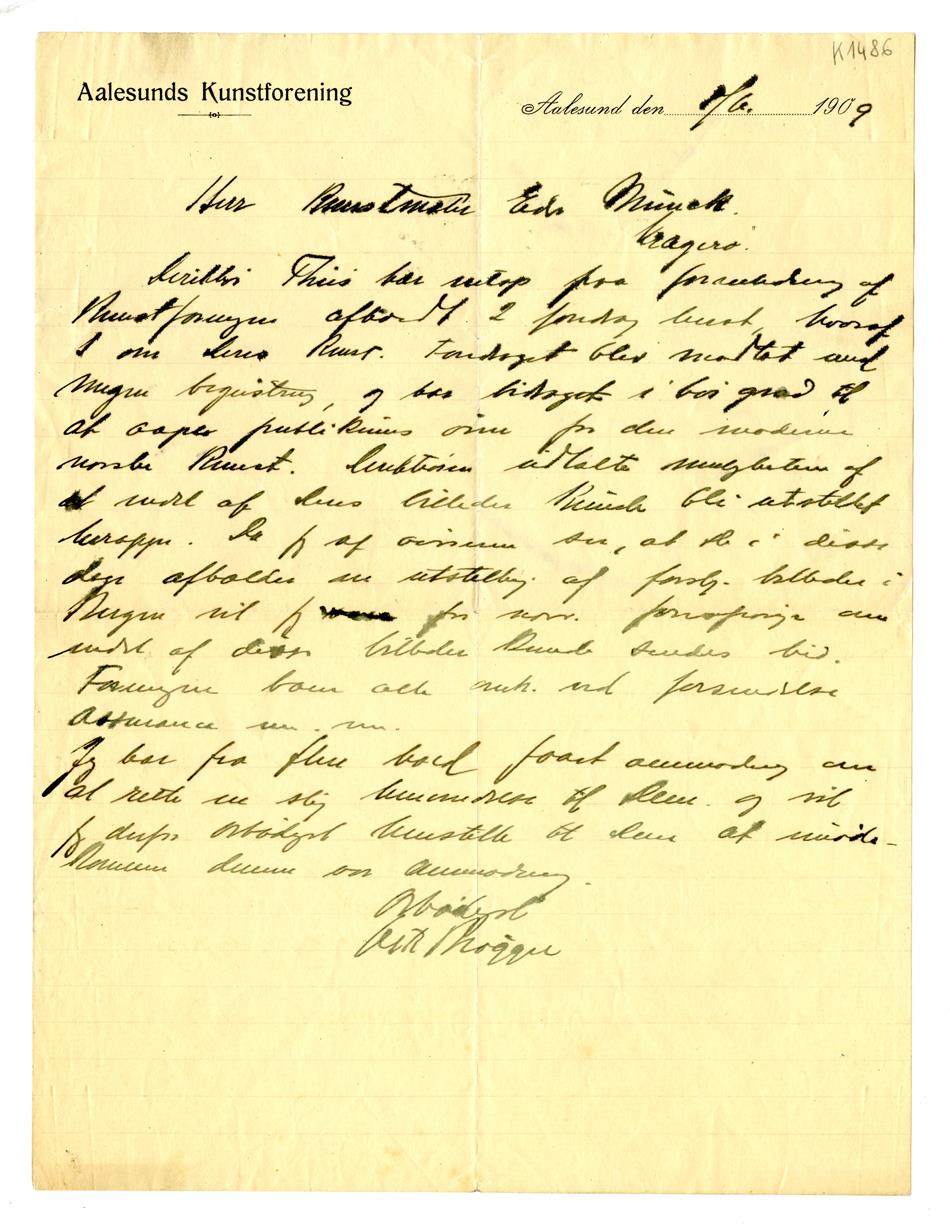 K1486
Aalesunds Kunstforening
Aalesund den 8/6. 1909
Herr Kunstmaler Edv Münck.
Kragerø.
Direktør Thiis har netop paa foranledning af
Kunstforeningen afholdt 2 foredrag herst, hvoraf
1 om Deres Kunst. Foredraget blev modtat med
megen begeistring, og har bidraget i høi grad til
at aapne publikums øine for den moderne
norske Kunst. Direktøren udtalte muligheten af
at endel af Deres billeder kunde bli utstillet
heroppe. Da jeg af aviserne ser, at De i disse
dage afholder en utstilling af forskj. billeder i
Bergen vil jeg for nær. forespørge om
endel af disse billeder kunde sendes hid.
Foreningen bærer alle omk. ved forsendelse
assurance m. m.
Jeg har fra flere hold faaet anmodning om
at rette en slig henvendelse til Dem. og vil
jeg derfor ærbødigst henstille til Dem at imøde-
komme denne vor anmodning.
Ærbødigst